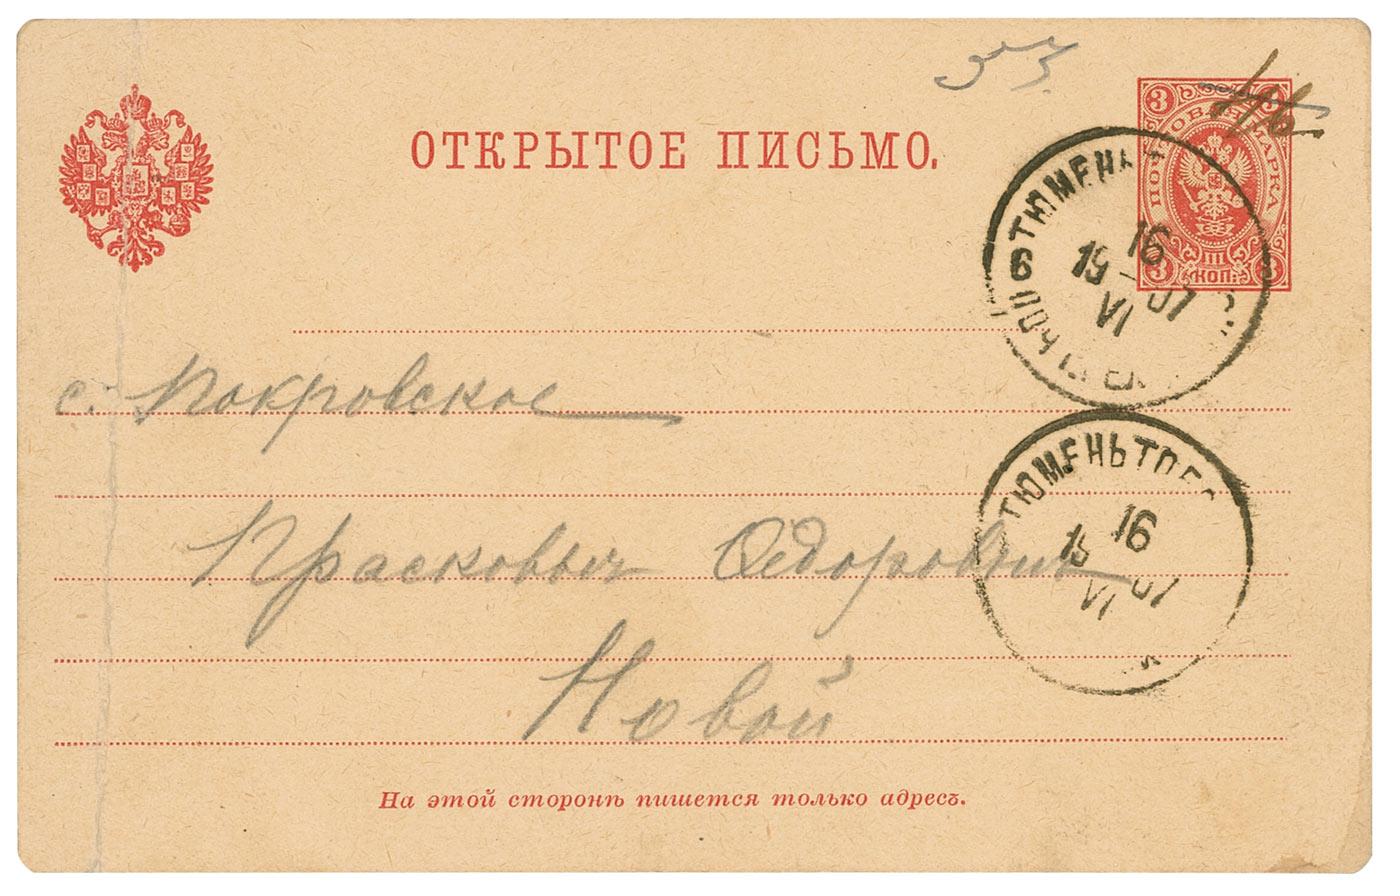 ОТКРЫТОЕ ПИСЬМО.
ПОЧТОВАЯ МАРКА
3 3
3 3
III
КОП:
16
19 07
VI
6
с. Покровское
ТЮМЕНЬ
16
19 07
VI
Прасковьи Ѳедоровни
Новой
На этой сторонѣ пишется только адресъ.